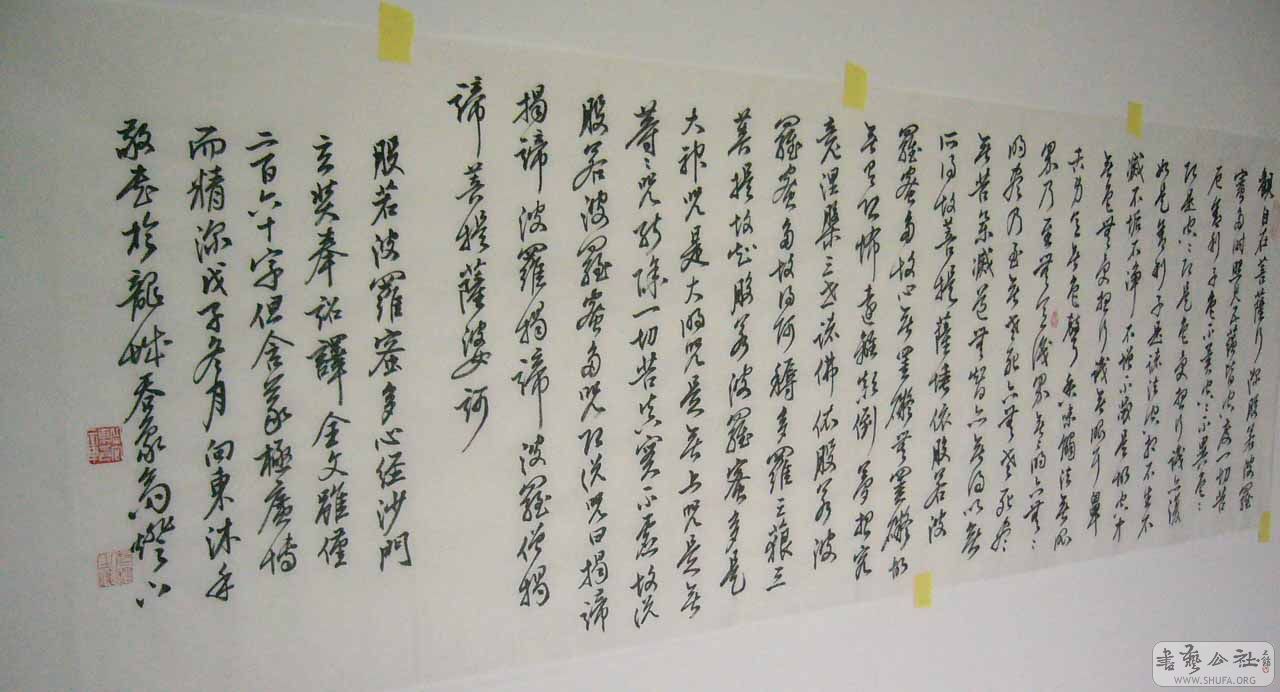 觀自在菩薩行深般若波羅
蜜多時照見五蘊皆空度一切苦
厄舍利子色不異空空不異色色
即是空空即是色受想行識亦復
如是舍利子是諸法空相不生不
滅不垢不淨不增不減是故空中
無色無受想行識無眼耳鼻
舌身意無色聲香味觸法無眼
界乃至無意識界無無明亦無無
明盡乃至無老死亦無老死盡
無苦集滅道無智亦無得以無
所得故菩提薩埵依般若波
羅蜜多故心無罣礙無罣礙故
無有恐怖遠離顛倒夢想究
竟涅槃三世諸佛依般若波
羅蜜多故得阿耨多羅三藐三
菩提故知般若波羅蜜多是
大神咒是大明咒是無上咒是無
等等咒能除一切苦真實不虛故說
般若波羅蜜多咒即說咒曰揭諦
揭諦波羅揭諦波羅僧揭
諦菩提薩婆訶
般若波羅蜜多心經沙門
玄奘奉詔譯全文雖僅
二百六十字但含義極廣博
而精深戊子冬月向東沐手
敬書於龍城
書藝公社
WWW.SHUFA.ORG